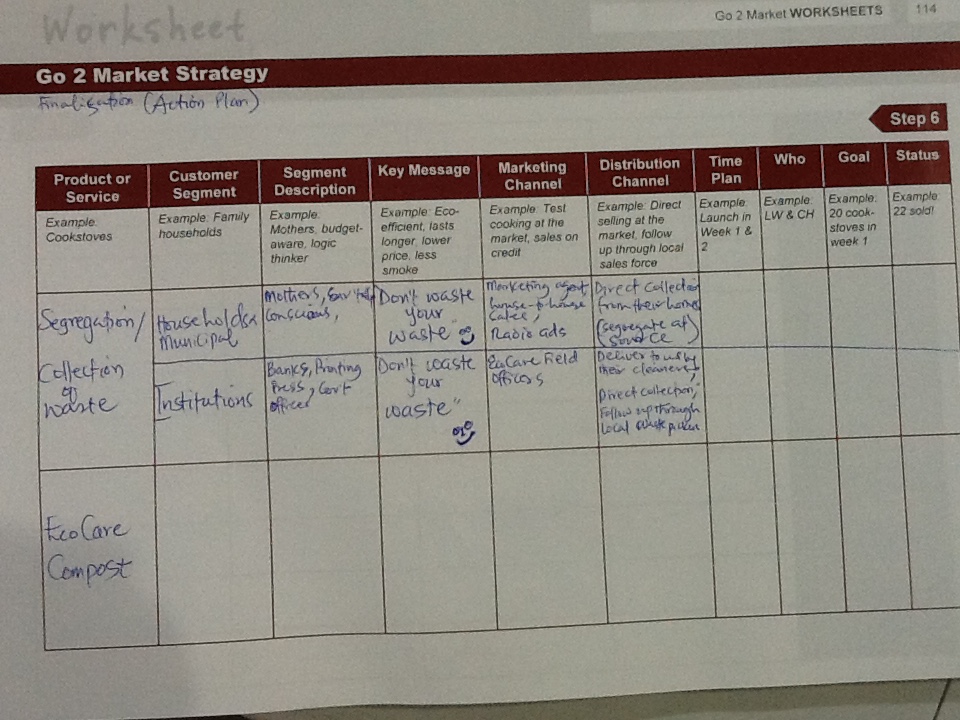 Go 2 Market WORKSHEETS 114
Worksheet
Go 2 Market Strategy
Finalisation (Action Plan)
Step 6
Product or
Service
Customer
Segment
Segment
Description
Key Message
Marketing
Channel
Distribution
Channel
Time
Plan
Who
Goal
Status
Example:
Cookstoves
Example: Family
households
Example:
Mothers, budget-
aware, logic
thinker
Example: Eco-
efficient, lasts
longer, lower
price, less
smoke
Example: Test
cooking at the
market, sales on
credit
Example: Direct
selling at the
market, follow
up through local
sales force
Example:
Launch in
Week 1 &
2
Example:
LW & CH
Example:
20 cook-
stoves in
week 1
Example:
22 sold!
Segregation/
Collection
of
waste
Households
Municipal
Mothers,
conscious,
Don't waste
your
waste"
Marketing agent,
house-to-house
Radio ads
Direct Collection
from their homes
(segregate at)
source
Institutions
Banks, Printing
Press, Gov't
offices
Don't waste
your
waste"
EcoCare Field
Officers
Deliver to us by
their cleaners,
Direct collection,
Follow up through
local waste
EcoCare
Compost